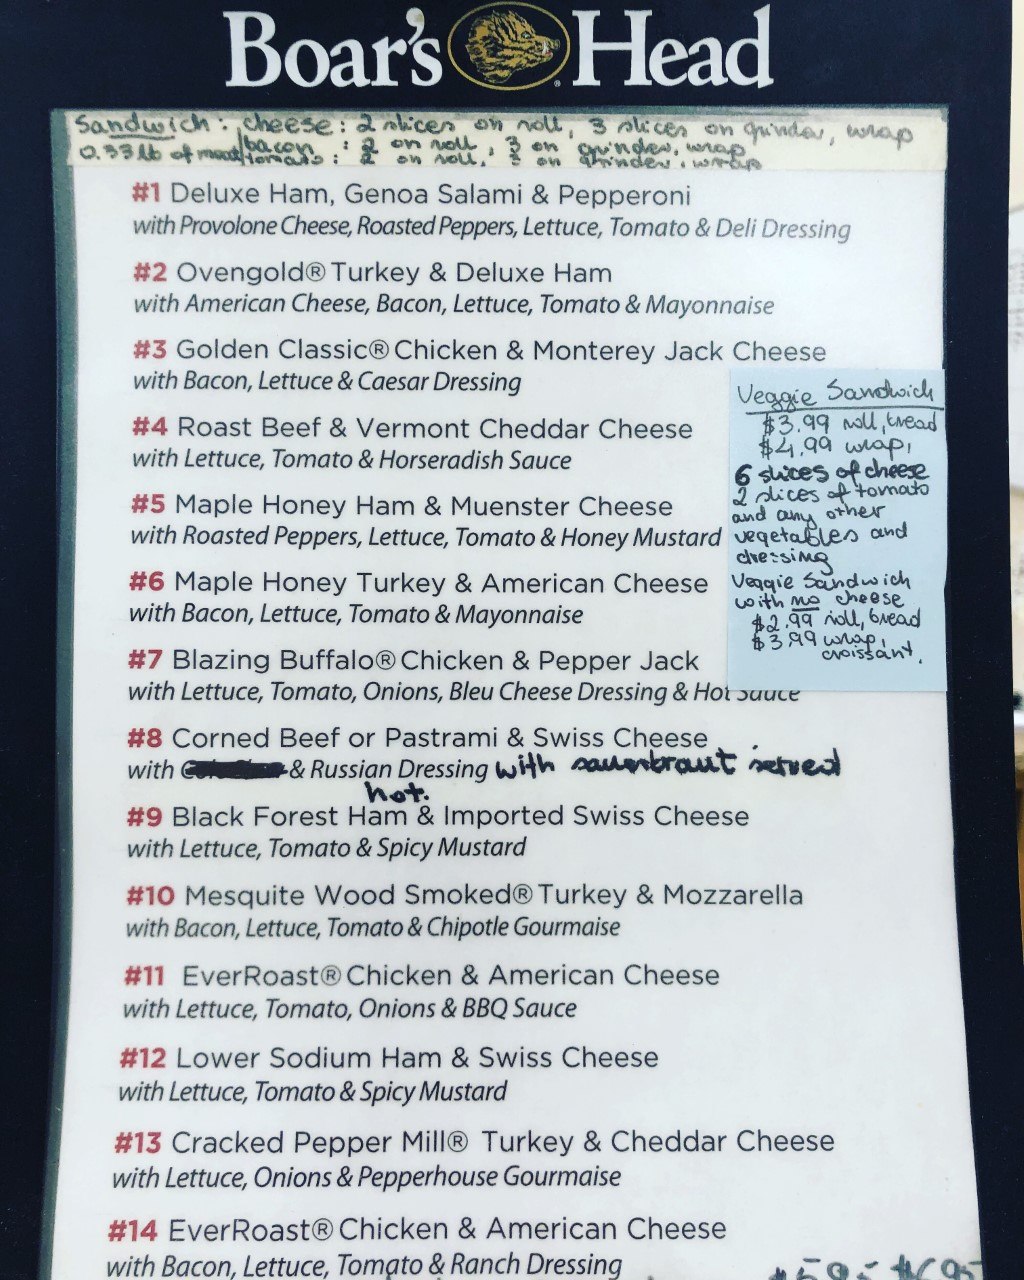 Boar's Head
Sandwich: cheese: 2 slices on roll, 3 slices on grinder, wrap
0.33 lb of meat/bacon : 2 on roll, 3 on grinder, wrap
tomato: 2 on roll, 3 on grinder, wrap
#1 Deluxe Ham, Genoa Salami & Pepperoni
with Provolone Cheese, Roasted Peppers, Lettuce, Tomato & Deli Dressing
#2 Ovengold® Turkey & Deluxe Ham
with American Cheese, Bacon, Lettuce, Tomato & Mayonnaise
#3 Golden Classic® Chicken & Monterey Jack Cheese
with Bacon, Lettuce & Caesar Dressing
#4 Roast Beef & Vermont Cheddar Cheese
with Lettuce, Tomato & Horseradish Sauce
#5 Maple Honey Ham & Muenster Cheese
with Roasted Peppers, Lettuce, Tomato & Honey Mustard
#6 Maple Honey Turkey & American Cheese
with Bacon, Lettuce, Tomato & Mayonnaise
#7 Blazing Buffalo® Chicken & Pepper Jack
with Lettuce, Tomato, Onions, Bleu Cheese Dressing & Hot Sauce
Veggie Sandwich
$3.99 roll, bread
$4.99 wrap,
6 slices of cheese
2 slices of tomato
and any other
vegetables and
dressing
Veggie Sandwich
with no cheese
$2.99 roll, bread
$3.99 wrap,
croissant.
#8 Corned Beef or Pastrami & Swiss Cheese
with & Russian Dressing with sauerbraut served
hot.
#9 Black Forest Ham & Imported Swiss Cheese
with Lettuce, Tomato & Spicy Mustard
#10 Mesquite Wood Smoked® Turkey & Mozzarella
with Bacon, Lettuce, Tomato & Chipotle Gourmaise
#11 EverRoast® Chicken & American Cheese
with Lettuce, Tomato, Onions & BBQ Sauce
#12 Lower Sodium Ham & Swiss Cheese
with Lettuce, Tomato & Spicy Mustard
#13 Cracked Pepper Mill® Turkey & Cheddar Cheese
with Lettuce, Onions & Pepperhouse Gourmaise
#14 EverRoast® Chicken & American Cheese
with Bacon, Lettuce, Tomato & Ranch Dressing